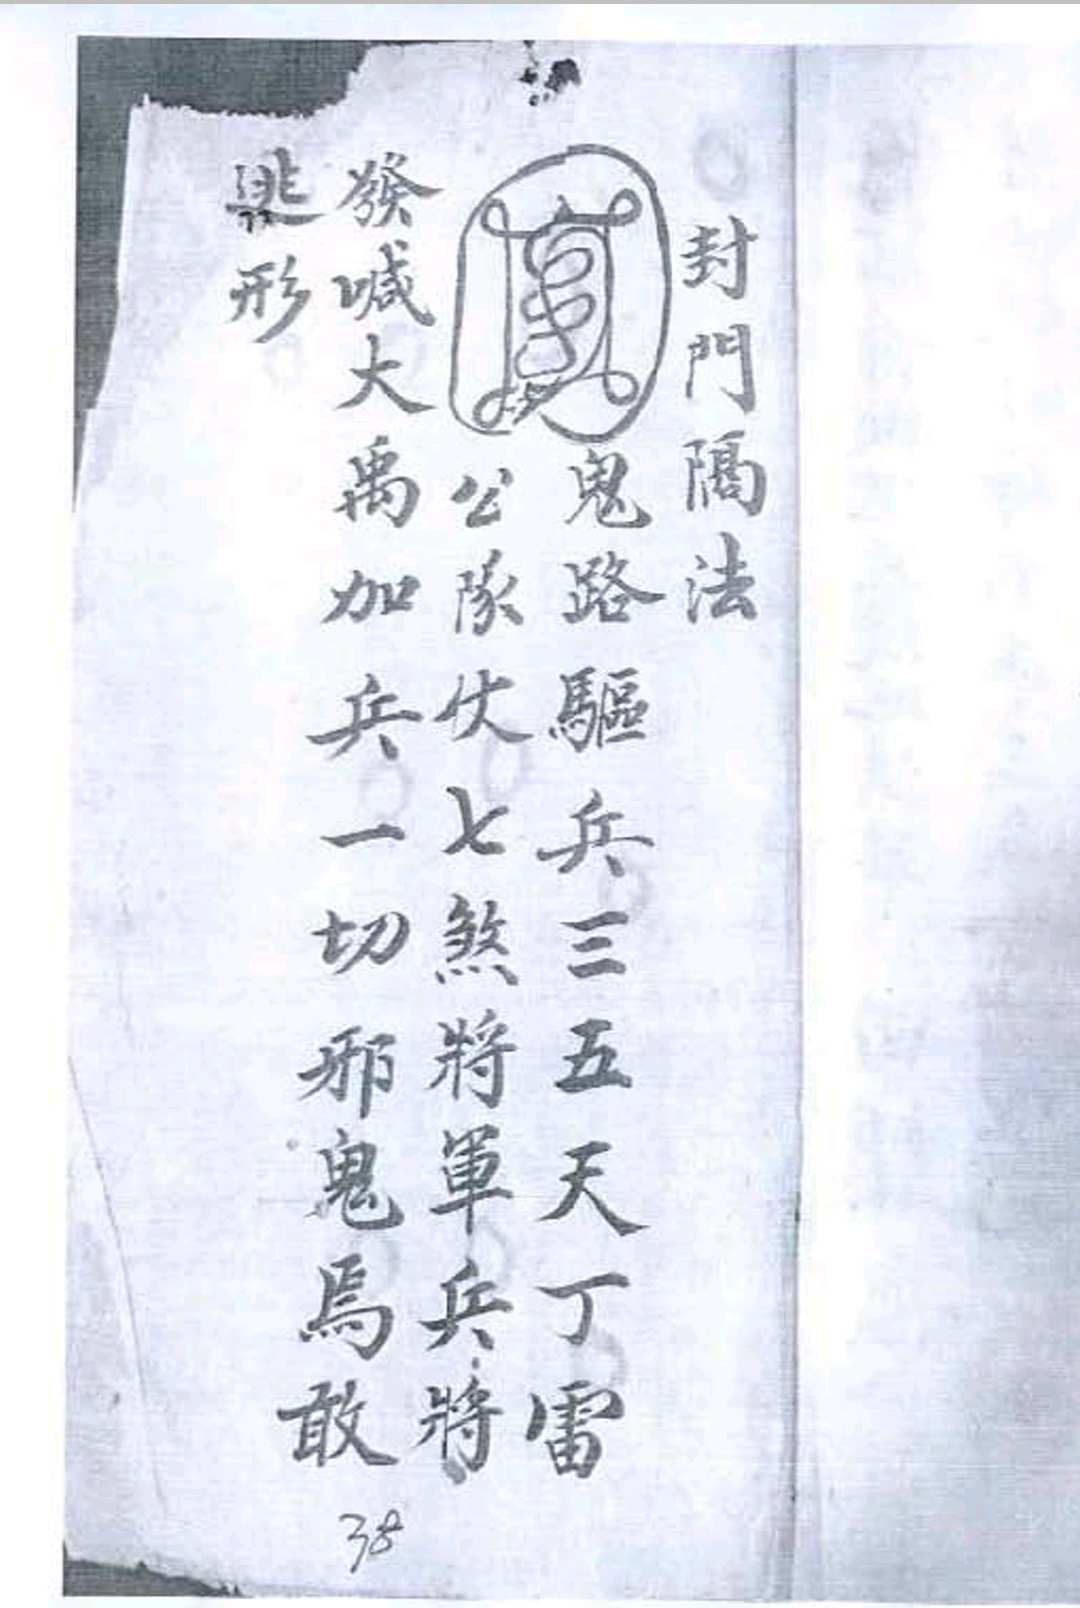 封門隔法
鬼路驅兵三五天丁雷
公隊仗七煞將軍兵將
發喊大禹加兵一切邪鬼焉敢
逃形
38